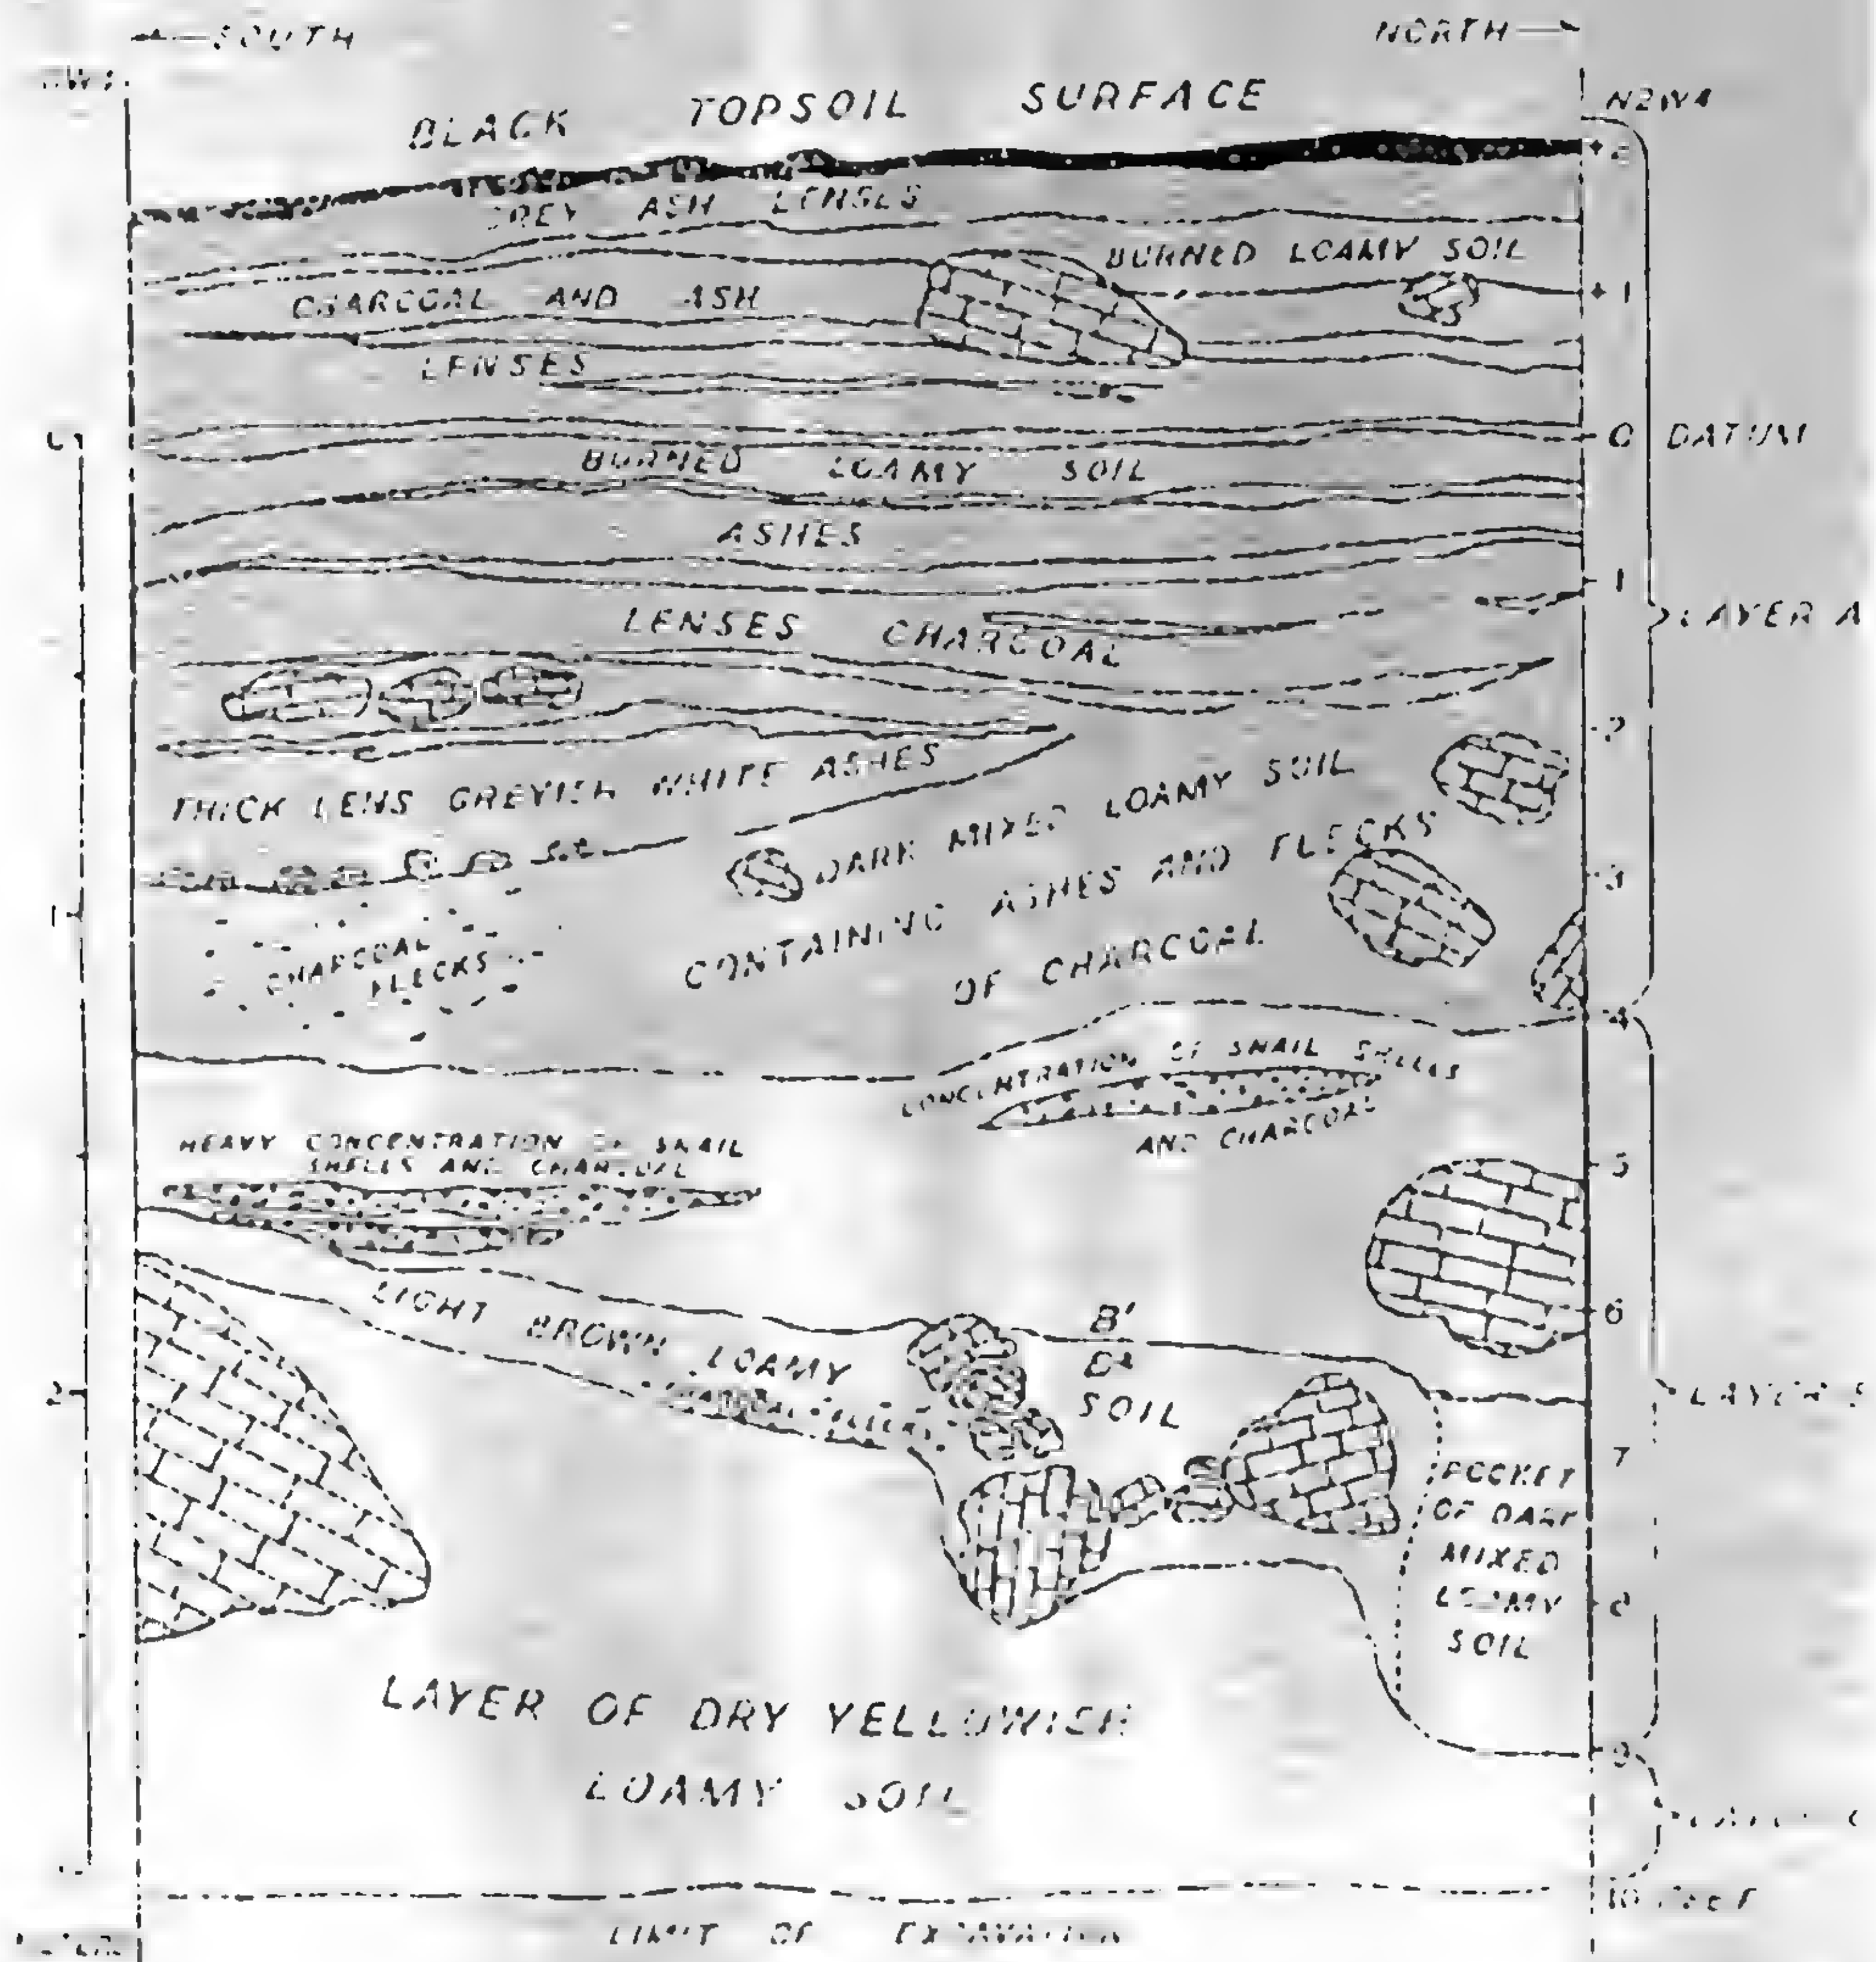 SOUTH
NORTH
N2W4
BLACK TOPSOIL SURFACE
+2
GREY ASH LENSES
BURNED LOAMY SOIL
CHARCOAL AND ASH
+1
LENSES
0
0 DATUM
BURNED LOAMY SOIL
ASHES
1
LENSES CHARCOAL
LAYER A
2
THICK LENS GREYISH WHITE ASHES
DARK MIXED LOAMY SOIL
CONTAINING ASHES AND FLECKS
OF CHARCOAL
3
1
CHARCOAL
FLECKS
4
CONCENTRATION OF SNAIL SHELLS
AND CHARCOAL
HEAVY CONCENTRATION OF SNAIL
SHELLS AND CHARCOAL
5
LIGHT BROWN LOAMY
SOIL
B'
B²
6
2
LAYER
7
POCKET
OF DARK
MIXED
LOAMY
SOIL
8
LAYER OF DRY YELLOWISH
LOAMY SOIL
9
10 FEET
LIMIT OF EXCAVATION